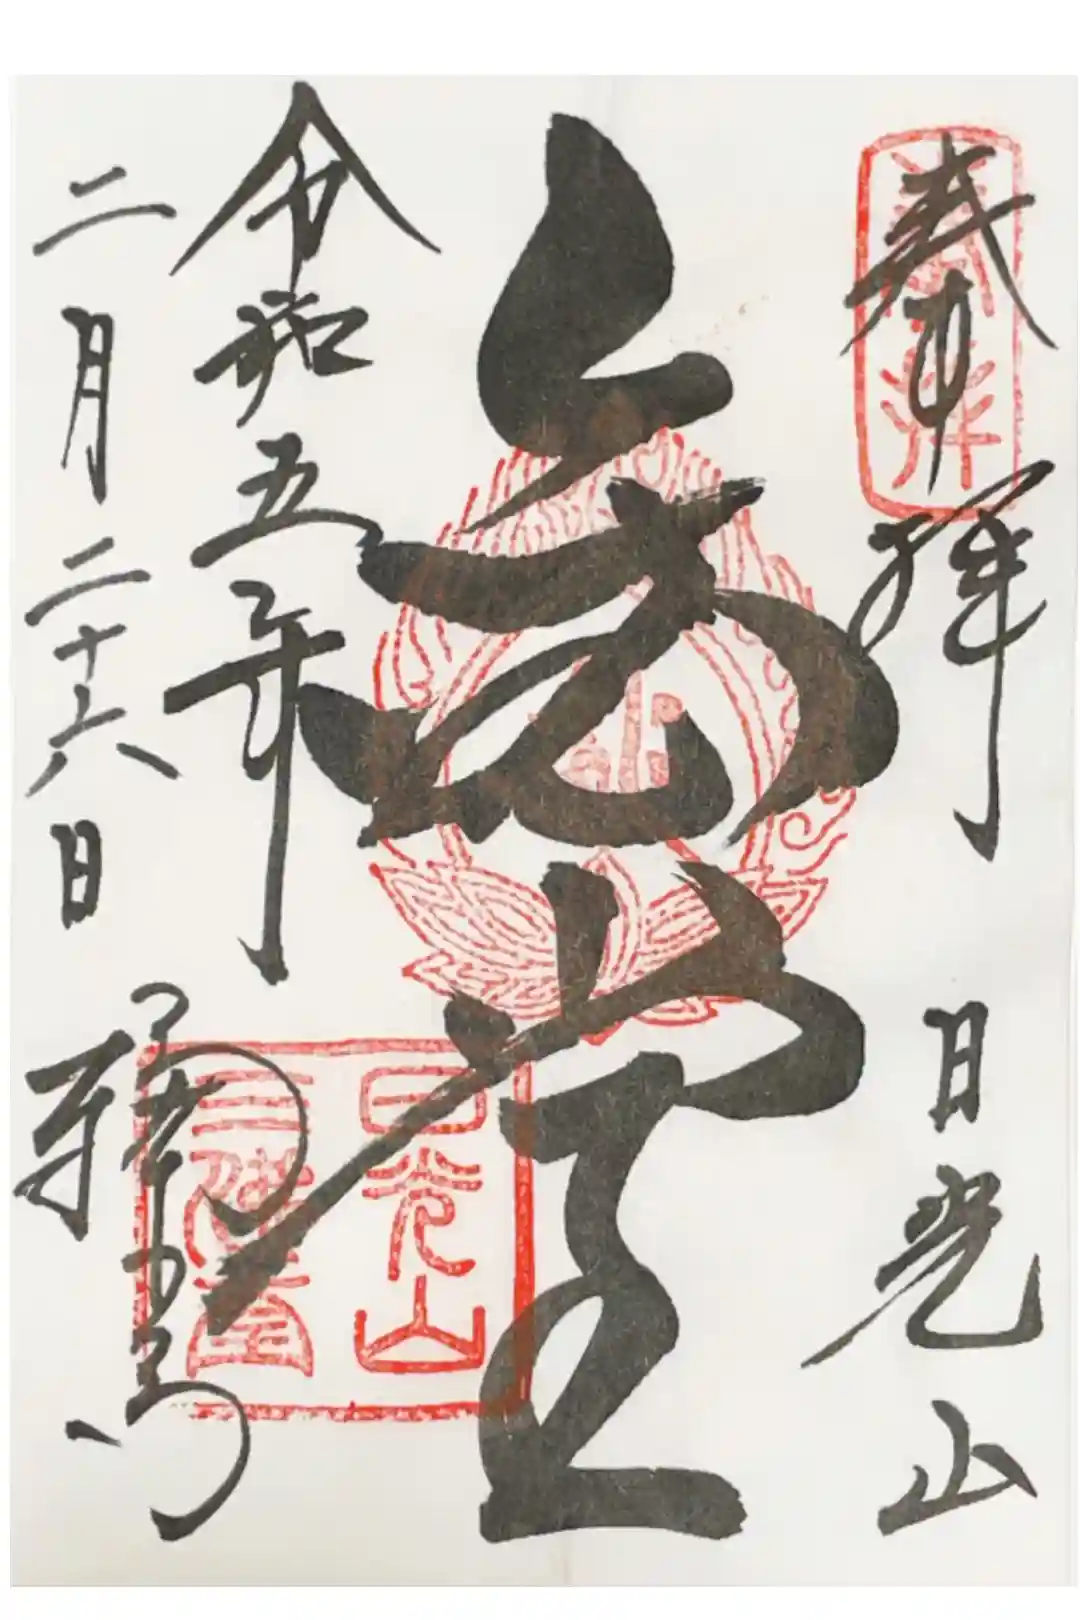 奉拝
奉拝　日光山
金堂
日光山
三佛堂
令和五年
二月二十六日